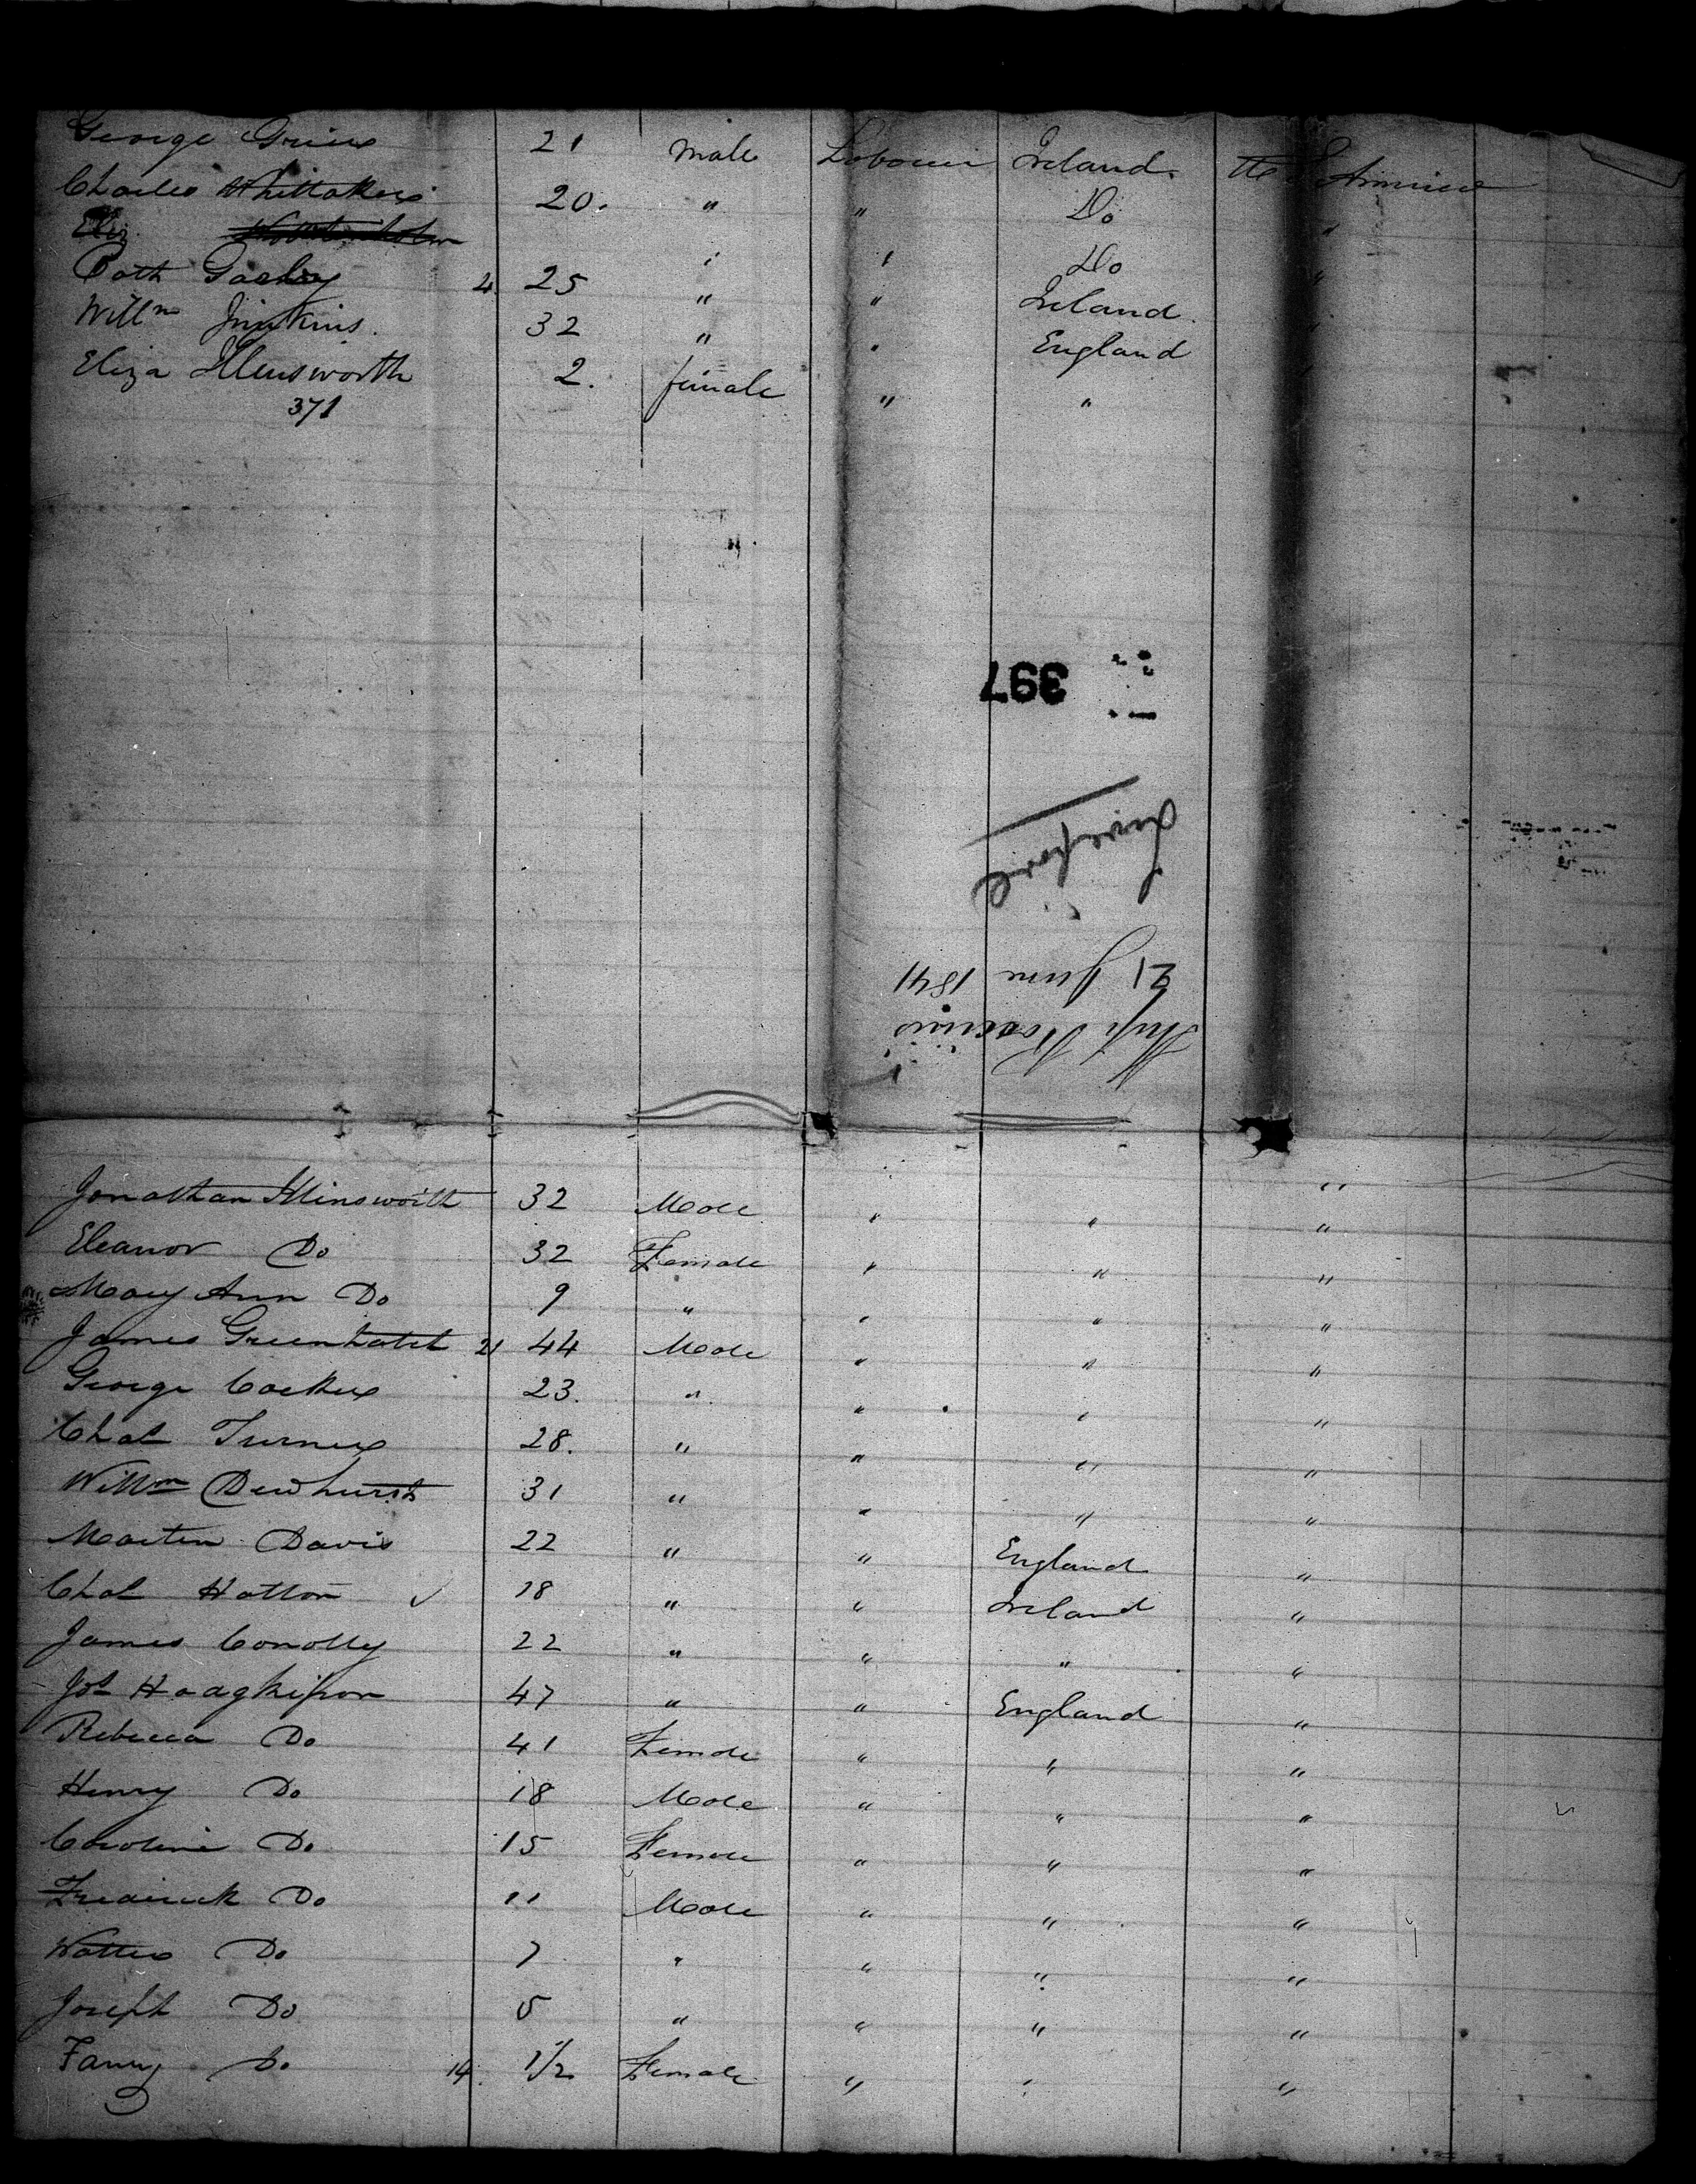 George Grier 21 Male Labourer Ireland. the S America
Charles Whittaker 20. " " Do "
Eliz " " Do "
Path 4 25 " " Ireland. "
Willm Jinkins. 32 " " England "
Eliza Illensworth 2. female " "
371
397
Liverpool
21 June 1841
Ship Roscius
Jonathan Illinsworth 32 Male " " "
Eleanor Do 32 Female " " "
Mary Ann Do 9 " " " "
James Greenhalch 21 44 Male " " "
George Cocker 23. " " " "
Chas Turner 28. " " " "
Willm Dewhurst 31 " " " "
Martin Davis 22 " " England "
Chas Hatton 18 " " Ireland "
James Conolly 22 " " " "
Jos Hodgkison 47 " " England "
Rebecca Do 41 Female " " "
Henry Do 18 Male " " "
Caroline Do 15 Female " " "
Frederick Do 11 Male " " "
Walter Do 7 " " " "
Joseph Do 5 " " " "
Fanny Do 14 1½ Female " " "